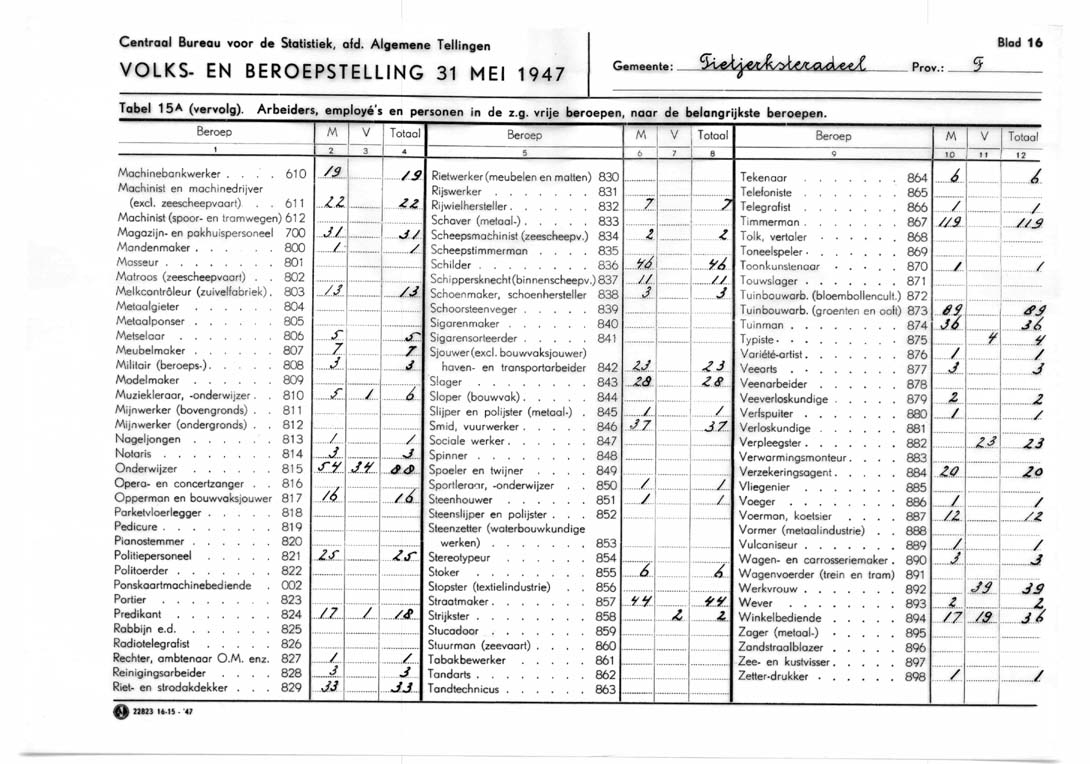 Centraal Bureau voor de Statistiek, afd. Algemene Tellingen
VOLKS- EN BEROEPSTELLING 31 MEI 1947
Gemeente: Tietjerksteradeel Prov.: F
Blad 16
Tabel 15A (vervolg). Arbeiders, employé's en personen in de z.g. vrije beroepen, naar de belangrijkste beroepen.
Beroep M V Totaal
1 2 3 4
Machinebankwerker . . . . 610 19 19
Machinist en machinedrijver
(excl. zeescheepvaart) . . 611 22 22
Machinist (spoor- en tramwegen) 612
Magazijn- en pakhuispersoneel 700 31 31
Mandenmaker . . . . . . 800 1 1
Masseur . . . . . . . 801
Matroos (zeescheepvaart) . . 802
Melkcontrôleur (zuivelfabriek) . 803 13 13
Metaalgieter . . . . . . 804
Metaalponser . . . . . . 805
Metselaar . . . . . . . 806 5 5
Meubelmaker . . . . . . 807 7 7
Militair (beroeps-) . . . . . 808 3 3
Modelmaker . . . . . . 809
Muziekleraar, -onderwijzer . . 810 5 1 6
Mijnwerker (bovengronds) . . 811
Mijnwerker (ondergronds) . . 812
Nageljongen . . . . . . 813 1 1
Notaris . . . . . . . . 814 3 3
Onderwijzer . . . . . . 815 54 34 88
Opera- en concertzanger . . 816
Opperman en bouwvaksjouwer 817 16 16
Parketvloerlegger . . . . . 818
Pedicure . . . . . . . . 819
Pianostemmer . . . . . . 820
Politiepersoneel . . . . . 821 25 25
Politoerder . . . . . . . 822
Ponskaartmachinebediende 002
Portier . . . . . . . 823
Predikant . . . . . . . 824 17 1 18
Rabbijn e.d. . . . . . . 825
Radiotelegrafist . . . . . 826
Rechter, ambtenaar O.M. enz. 827 1 1
Reinigingsarbeider . . . . 828 3 3
Riet- en strodakdekker . . . 829 33 33
Beroep M V Totaal
5 6 7 8
Rietwerker (meubelen en matten) 830
Rijswerker . . . . . . . 831
Rijwielhersteller . . . . . . 832 7 7
Schaver (metaal-) . . . . . 833
Scheepsmachinist (zeescheepv.) 834 2 2
Scheepstimmerman . . . . 835
Schilder . . . . . . . . 836 46 46
Schippersknecht (binnenscheepv.) 837 11 11
Schoenmaker, schoenhersteller 838 3 3
Schoorsteenveger . . . . . 839
Sigarenmaker . . . . . . 840
Sigarensorteerder . . . . . 841
Sjouwer (excl. bouwvaksjouwer)
haven- en transportarbeider 842 23 23
Slager . . . . . . . 843 28 28
Sloper (bouwvak) . . . . . 844
Slijper en polijster (metaal-) . 845 1 1
Smid, vuurwerker . . . . . 846 37 37
Sociale werker . . . . . . 847
Spinner . . . . . . . . 848
Spoeler en twijner . . . . 849
Sportleraar, -onderwijzer . . 850 1 1
Steenhouwer . . . . . . 851 1 1
Steenslijper en polijster . . . 852
Steenzetter (waterbouwkundige
werken) . . . . . . . 853
Stereotypeur . . . . . . 854
Stoker . . . . . . . . 855 6 6
Stopster (textielindustrie) . . 856
Straatmaker . . . . . . . 857 44 44
Strijkster . . . . . . . . 858 2 2
Stucadoor . . . . . . . 859
Stuurman (zeevaart) . . . . 860
Tabakbewerker . . . . . 861
Tandarts . . . . . . . . 862
Tandtechnicus . . . . . . 863
Beroep M V Totaal
9 10 11 12
Tekenaar . . . . . . . 864 6 6
Telefoniste . . . . . . 865
Telegrafist . . . . . . . 866 1 1
Timmerman . . . . . . . 867 119 119
Tolk, vertaler . . . . . . 868
Toneelspeler . . . . . . . 869
Toonkunstenaar . . . . . 870 1 1
Touwslager . . . . . . . 871
Tuinbouwarb. (bloembollencult.) 872
Tuinbouwarb. (groenten en ooft) 873 89 89
Tuinman . . . . . . . . 874 36 36
Typiste . . . . . . . . 875 4 4
Variété-artist . . . . . . . 876 1 1
Veearts . . . . . . . . 877 3 3
Veenarbeider . . . . . . 878
Veeverloskundige . . . . . 879 2 2
Verfspuiter . . . . . . . 880 1 1
Verloskundige . . . . . . 881
Verpleegster . . . . . . . 882 23 23
Verwarmingsmonteur . . . . 883
Verzekeringsagent . . . . . 884 20 20
Vliegenier . . . . . . . 885
Voeger . . . . . . . . 886 1 1
Voerman, koetsier . . . . 887 12 12
Vormer (metaalindustrie) . . 888
Vulcaniseur . . . . . . . 889 1 1
Wagen- en carrosseriemaker . 890 3 3
Wagenvoerder (trein en tram) 891
Werkvrouw . . . . . . . 892 39 39
Wever . . . . . . . . 893 2 2
Winkelbediende . . . . . 894 17 19 36
Zager (metaal-) . . . . . 895
Zandstraalblazer . . . . . 896
Zee- en kustvisser . . . . . 897
Zetter-drukker . . . . . . 898 1 1
22823 16-15 - '47